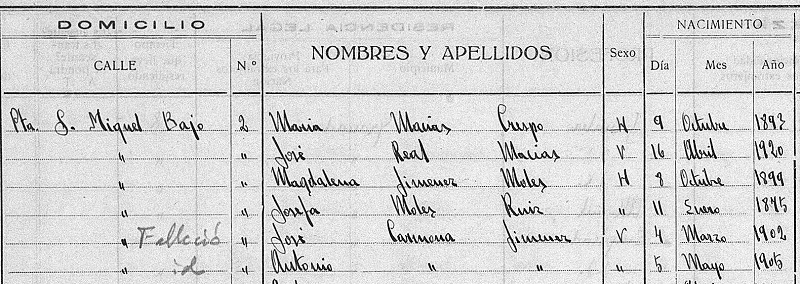 DOMICILIO NACIMIENTO
CALLE N.º NOMBRES Y APELLIDOS Sexo Día Mes Año
Pta. S. Miguel Bajo 2 Maria Macias Crespo H 9 Octubre 1893
" " José Real Macias V 16 Abril 1920
" " Magdalena Jimenez Moles H 8 Octubre 1899
" " Josefa Moles Ruiz " 11 Enero 1875
" Falleció " José Carmona Jimenez V 4 Marzo 1902
" id " Antonio " " " 5 Mayo 1905